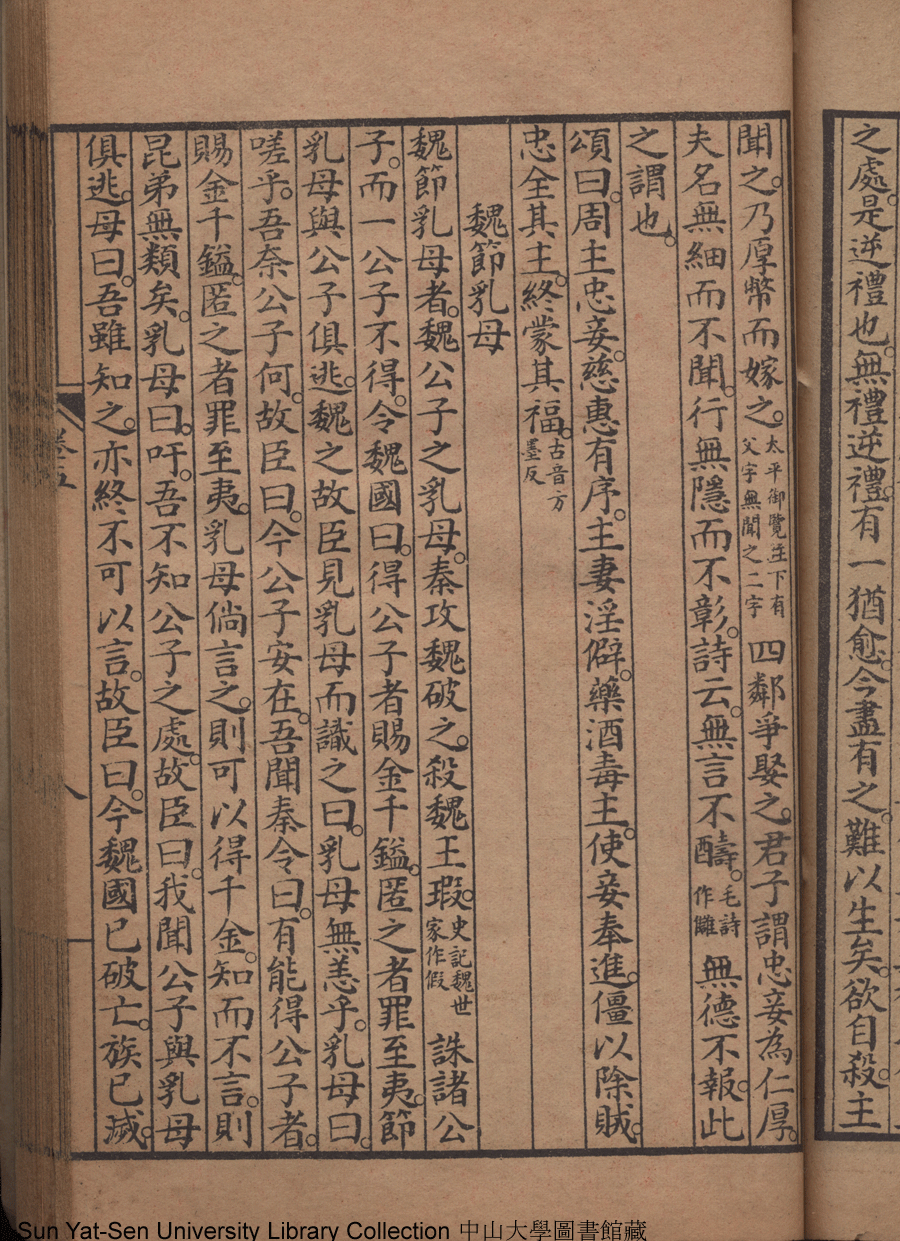 之處。是逆禮也。無禮逆禮。有一猶愈。今盡有之。難以生矣。欲自殺。主
聞之。乃厚幣而嫁之。太平御覽並下有父字無聞之二字四鄰爭娶之。君子謂忠妾為仁厚。
夫名無細而不聞。行無隱而不彰。詩云。無言不醻。毛詩作讎無德不報。此
之謂也。
頌曰。周主忠妾。慈惠有序。主妻淫僻。藥酒毒主。使妾奉進。僵以除賊。
忠全其主。終蒙其福。古音方墨反
魏節乳母
魏節乳母者。魏公子之乳母。秦攻魏破之。殺魏王瑕。史記魏世家作假誅諸公
子。而一公子不得。令魏國曰。得公子者賜金千鎰。匿之者罪至夷。節
乳母與公子俱逃。魏之故臣見乳母而識之曰。乳母無恙乎。乳母曰。
嗟乎。吾奈公子何。故臣曰。今公子安在。吾聞秦令曰。有能得公子者。
賜金千鎰。匿之者罪至夷。乳母倘言之。則可以得千金。知而不言。則
昆弟無類矣。乳母曰。吁。吾不知公子之處。故臣曰。我聞公子與乳母
俱逃。母曰。吾雖知之。亦終不可以言。故臣曰。今魏國已破亡。族已滅。
卷五
八
Sun Yat-Sen University Library Collection 中山大學圖書館藏